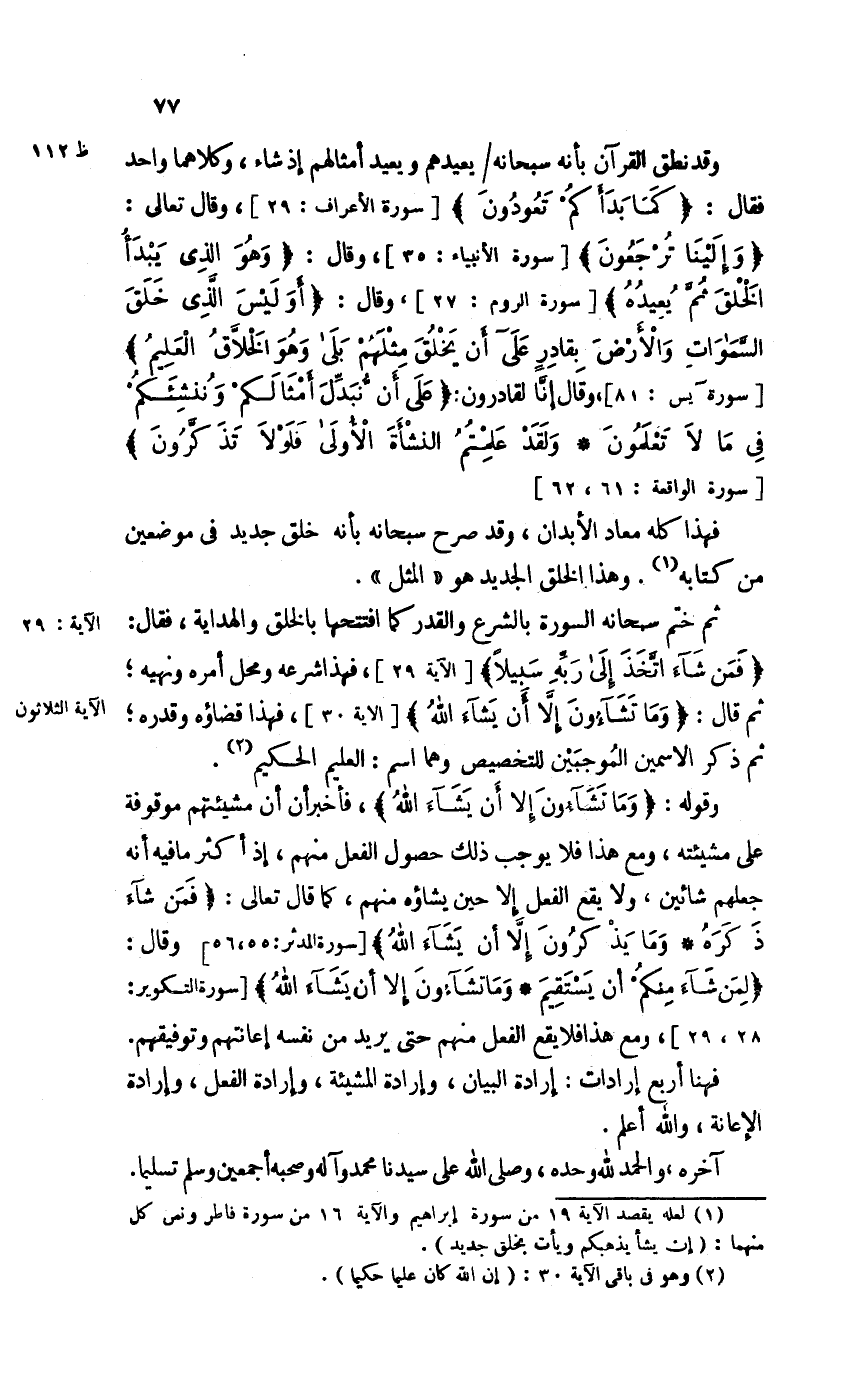 ٧٧
وقد نطق القرآن بأنه سبحانه / يعيدهم ويعيد أمثالهم إذ شاء ، وكلاهما واحد
ظ ١١٢
فقال : ﴿ كَمَا بَدَأَ كُمْ تَعُودُونَ ﴾ [ سورة الأعراف : ٢٩ ] ، وقال تعالى :
﴿ وَإِلَيْنَا تُرْجَعُونَ ﴾ [ سورة الأنبياء : ٣٥ ] ، وقال : ﴿ وَهُوَ الذِى يَبْدَأُ
الْخَلْقَ ثُمَّ يُعِيدُهُ ﴾ [ سورة الروم : ٢٧ ] ، وقال : ﴿ أَوَ لَيْسَ الَّذِى خَلَقَ
السَّمٰوَاتِ وَالْأَرْضَ بِقادِرٍ عَلَىٓ أَن يَخْلُقَ مِثْلَهُمْ بَلَىٰ وَهُوَ الْخَلاَّقُ الْعَلِيمُ ﴾
[ سورة يٓس : ٨١ ] ، وقال إنَّا لقادرون : ﴿ عَلَى أَن نُّبَدِّلَ أَمْثَالَكُمْ وَنُنشِئَكُمْ
فِى مَا لاَ تَعْلَمُونَ * وَلَقَدْ عَلِمْتُمُ النشْأَةَ الْأُولَىٰ فَلَوْلاَ تَذَكَّرُونَ ﴾
[ سورة الواقعة : ٦١ ، ٦٢ ]
فهذا كله معاد الأبدان ، وقد صرح سبحانه بأنه خلق جديد فى موضعين
من كتابه (١) . وهذا الخلق الجديد هو « المثل » .
ثم ختم سبحانه السورة بالشرع والقدر كما افتتحها بالخلق والهداية ، فقال :
الآية : ٢٩
﴿ فَمَن شَآءَ اتَّخَذَ إِلَىٰ رَبِّهِ سَبِيلاً ﴾ [ الآية ٢٩ ] ، فهذا شرعه ومحل أمره ونهيه ؛
ثم قال : ﴿ وَمَا تَشَآءُونَ إِلَّا أَن يَشَآءَ اللهُ ﴾ [ الاية ٣٠ ] ، فهذا قضاؤه وقدره ؛
الآية الثلاثون
ثم ذكر الاسمين المُوجبَيْن للتخصيص وهما اسم : العليم الحكيم (٢) .
وقوله : ﴿ وَمَا تَشَآءُونَ إِلا أَن يَشَآءَ اللهُ ﴾ ، فأخبر أن أن مشيئتهم موقوفة
على مشيئته ، ومع هذا فلا يوجب ذلك حصول الفعل منهم ، إذ أكثر مافيه أنه
جعلهم شائين ، ولا يقع الفعل إلا حين يشاؤه منهم ، كما قال تعالى : ﴿ فَمَن شَآءَ
ذَكَرَهُ * وَمَا يَذْكرُونَ إِلَّا أن يَشَآءَ اللهُ ﴾ [ سورة المدثر : ٥٥ ، ٥٦ ] وقال :
﴿ لِمَن شَآءَ مِنكُمْ أن يَسْتَقِيمَ * وَمَا تشَآءُونَ إِلا أن يَشَآءَ اللهُ ﴾ [ سورة التكوير :
٢٨ ، ٢٩ ] ، ومع هذا فلا يقع الفعل منهم حتى يريد من نفسه إعانتهم وتوفيقهم .
فهنا أربع إرادات : إرادة البيان ، وإرادة المشيئة ، وإرادة الفعل ، وإرادة
الإعانة ، والله أعلم .
آخره ، والحمد لله وحده ، وصلى الله على سيدنا محمد وآله وصحبه أجمعين وسلم تسليما .
(١) لعله يقصد الآية ١٩ من سورة إبراهيم والآية ١٦ من سورة فاطر ونص كل
منهما : ( إن يشأ يذهبكم ويأت بخلق جديد ) .
(٢) وهو فى باقى الآية ٣٠ : ( إن الله كان عليما حكيما ) .